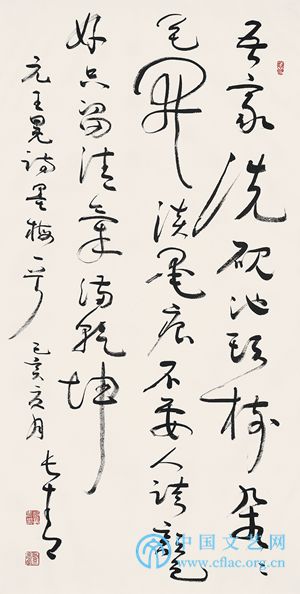 吾家洗砚池头树朵〻
花開淡墨痕不要人誇顏色
好只留清氣滿乾坤
元王冕詩墨梅一首 己亥夏月
中国文艺网
www.cflac.org.cn